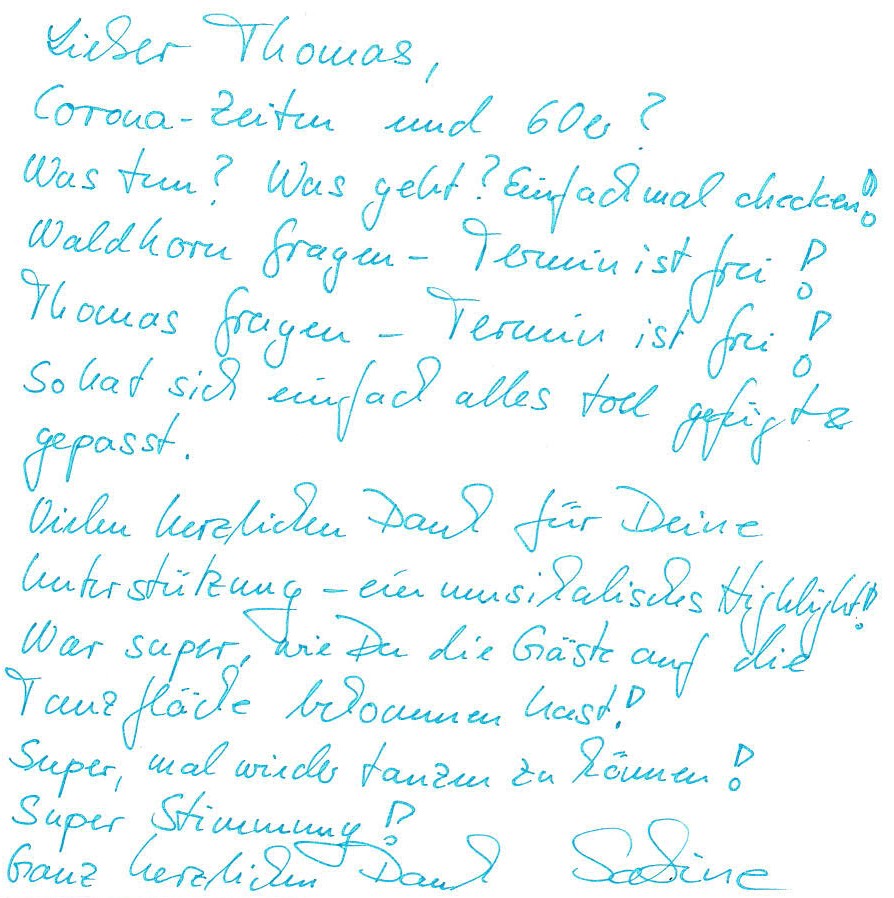 Lieber Thomas,
Corona-Zeiten und 60er?
Was tun? Was geht? Einfach mal checken!
Waldhorn fragen - Termin ist frei!
Thomas fragen - Termin ist frei!
So hat sich einfach alles toll gefügt &
gepasst.
Vielen herzlichen Dank für Deine
Unterstützung - ein musikalisches Highlight!
War super, wie Du die Gäste auf die
Tanzfläche bekommen hast!
Super, mal wieder tanzen zu können!
Super Stimmung!
Ganz herzlichen Dank Sabine